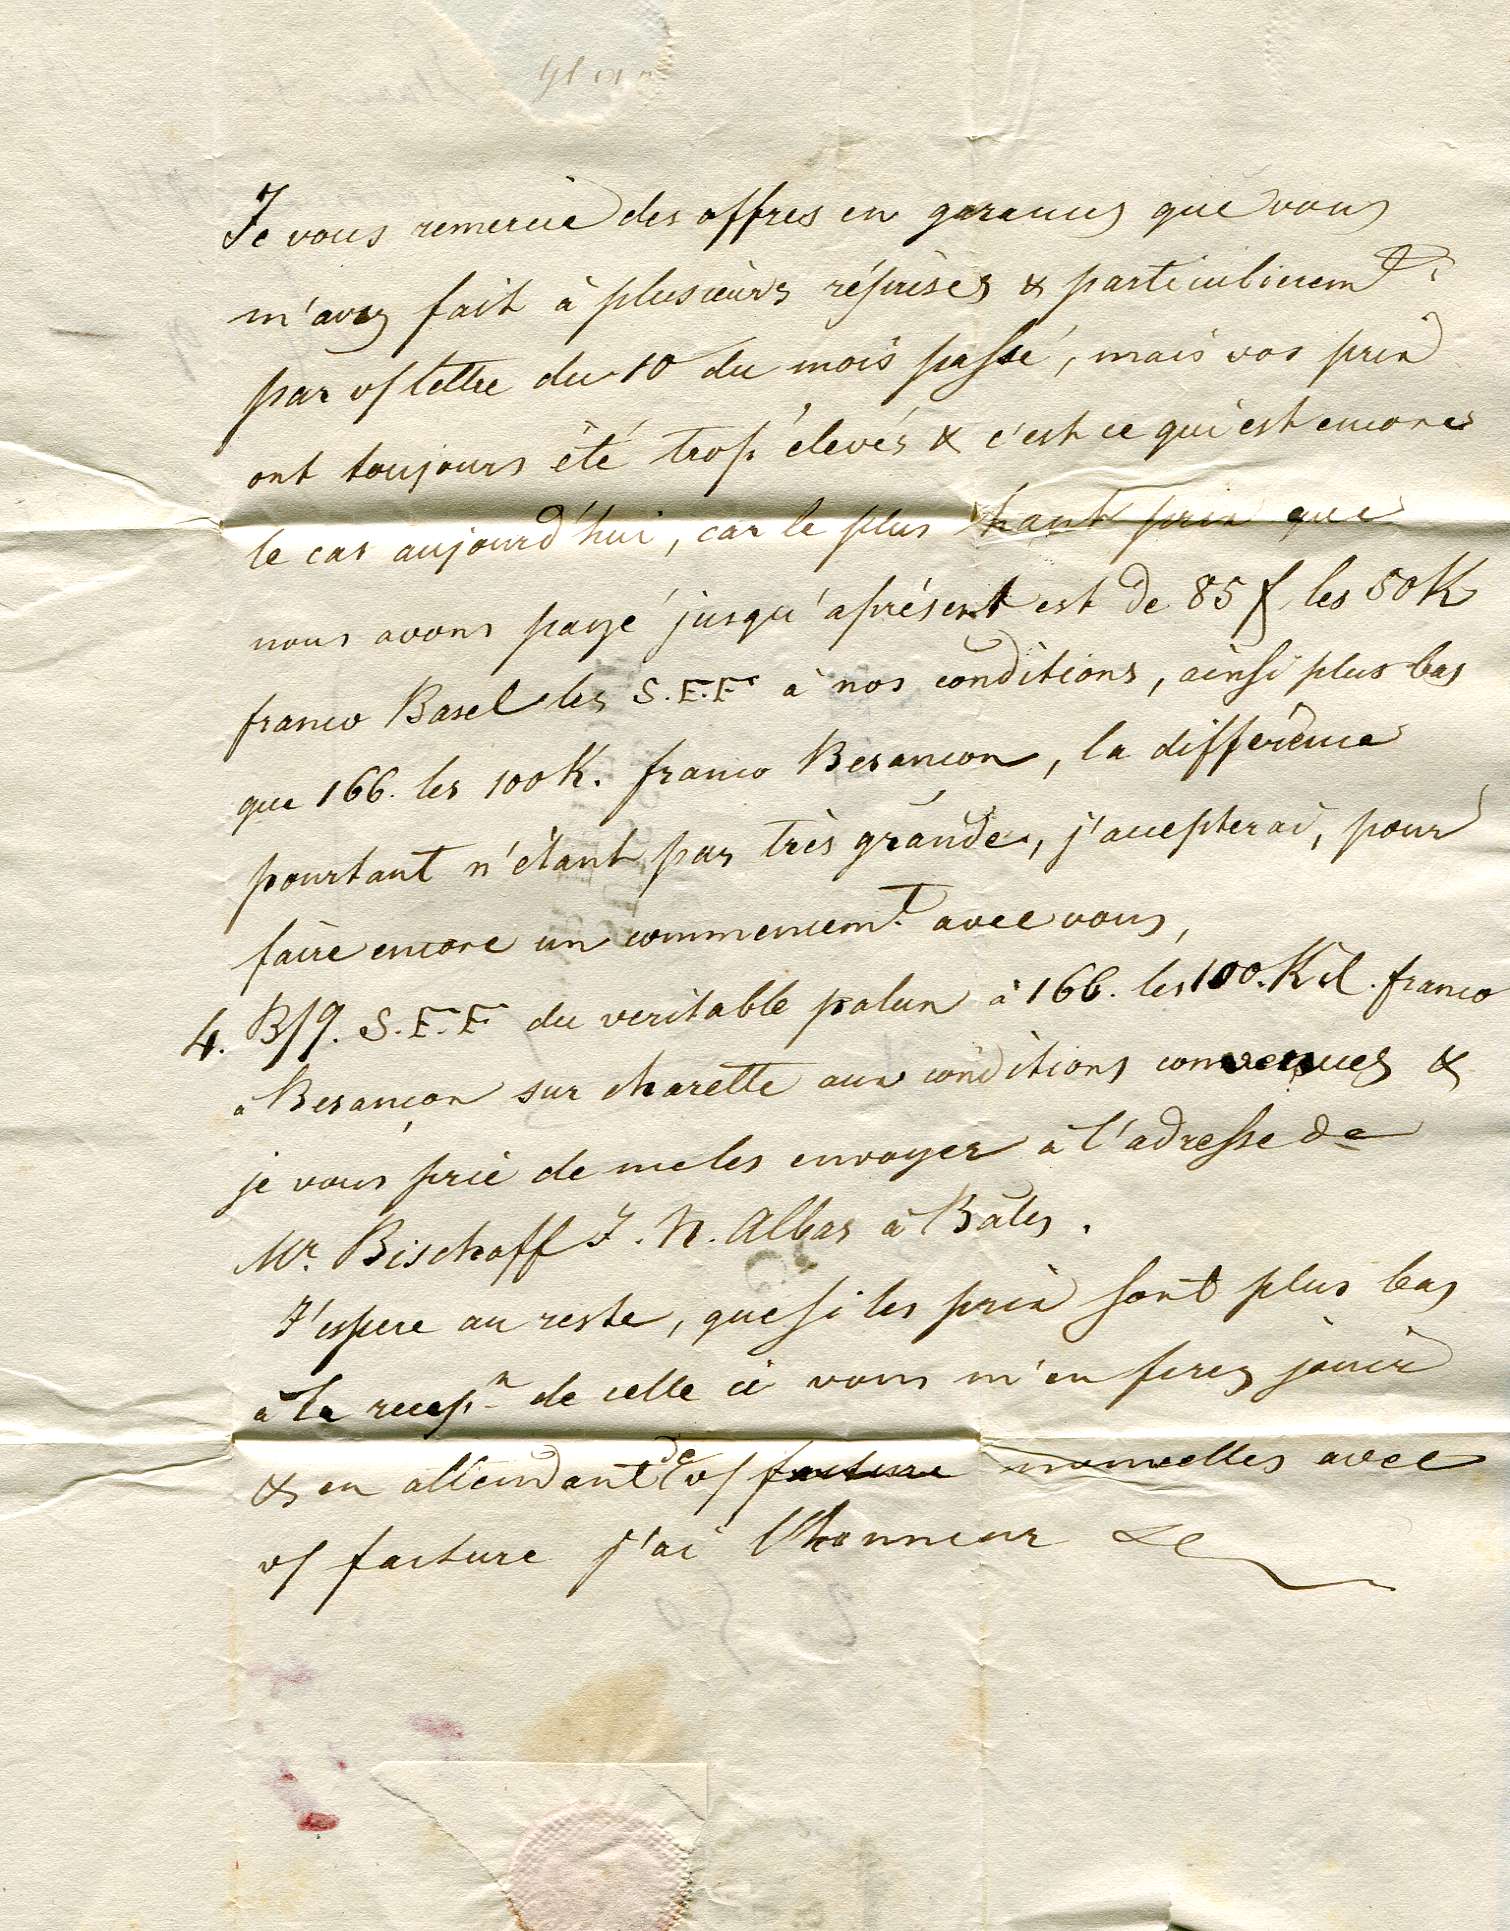 Je vous remercie des offres en garances que vous
m'avez fait à plusieurs réprises & particulierem.t
par v/ lettre du 10 du mois passé, mais vos prix
ont toujours été trop élevés & c'est ce qui est encore
le cas aujourd'hui, car le plus haut prix que
nous avons payé jusqu'aprésent est de 85 f les 50 K
franco Basel les S.F.F à nos conditions, ainsi plus bas
que 166. les 100 K. franco Besançon, la différence
pourtant n'étant pas très grande, j'accepterai, pour
faire encore un commencem.t avec vous,
4. B/q. S.F.F du veritable palun à 166. les 100. Kil. franco
à Besançon sur charette aux conditions convenues &
je vous prie de me les envoyer à l'adresse de
Mr. Bischoff J. N. Albas à Bâles.
J'espere au reste, que si les prix sont plus bas
à la recep.n de celle ci vous m'en ferez jouir
& en attendant de v/ facture nouvelles avec
v/ facture j'ai l'honneur